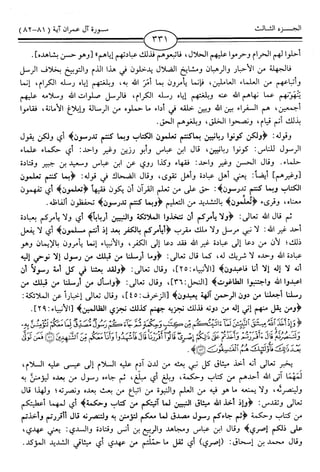 الجزء الثالث
سورة آل عمران آية (٨١-٨٢)
٣٣١
أحلوا لهم الحرام وحرموا عليهم الحلال، فاتبعوهم فذلك عبادتهم إياهم» [وهو حسن بشاهده].
فالجهلة من الأحبار والرهبان ومشايخ الضلال يدخلون في هذا الذم والتوبيخ بخلاف الرسل
وأتباعهم من العلماء العاملين، فإنما يأمرون بما أمَرَ الله به، وبلغتهم إياه رسله الكرام، إنما
يَنْهَوْنهم عما نهاهم الله عنه وبلغتهم إياه رسله الكرام، فالرسل صلوات الله وسلامه عليهم
أجمعين، هم السفراء بين الله وبين خلقه في أداء ما حملوه من الرسالة وإبلاغ الأمانة، فقاموا
بذلك أتم قيام، ونصحوا الخلق، وبلغوهم الحق.
وقوله: ﴿ولكن كونوا ربانيين بما كنتم تعلمون الكتاب وبما كنتم تدرسون﴾ أي ولكن يقول
الرسول للناس: كونوا ربانيين، قال ابن عباس وأبو رزين وغير واحد: أي حكماء علماء
حلماء. وقال الحسن وغير واحد: فقهاء وكذا روي عن ابن عباس وسعيد بن جبير وقتادة
[وغيرهم] أيضاً: يعني أهل عبادة وأهل تقوى، وقال الضحاك في قوله: ﴿بما كنتم تعلمون
الكتاب وبما كنتم تدرسون﴾: حق على من تعلم القرآن أن يكون فقيهاً ﴿تعلمون﴾ أي تفهمون
معناه، وقرىء ﴿تُعلِّمون﴾ بالتشديد من التعليم ﴿وبما كنتم تدرسون﴾ تحفظون ألفاظه.
ثم قال الله تعالى: ﴿ولا يأمركم أن تتخذوا الملائكة والنبيين أرباباً﴾ أي ولا يأمركم بعبادة
أحد غير الله: لا نبي مرسل ولا ملك مقرب ﴿أيأمركم بالكفر بعد إذ أنتم مسلمون﴾ أي لا يفعل
ذلك؛ لأن من دعا إلى عبادة غير الله فقد دعا إلى الكفر، والأنبياء إنما يأمرون بالإيمان وهو
عبادة الله وحده لا شريك له، كما قال تعالى: ﴿وما أرسلنا من قبلك من رسول إلا نوحي إليه
أنه لا إله إلا أنا فاعبدون﴾ [الأنبياء: ٢٥]، وقال تعالى: ﴿ولقد بعثنا في كل أمة رسولاً أن
اعبدوا الله واجتنبوا الطاغوت﴾ [النحل: ٣٦]، وقال تعالى: ﴿واسأل من أرسلنا من قبلك من
رسلنا أجعلنا من دون الرحمن آلهة يعبدون﴾ [الزخرف: ٤٥]، وقال تعالى إخباراً عن الملائكة:
﴿ومن يقل منهم إني إله من دونه فذلك نجزيه جهنم كذلك نجزي الظالمين﴾ [الأنبياء: ٢٩].
﴿وَإِذْ أَخَذَ اللَّهُ مِيثَاقَ النَّبِيِّينَ لَمَا آتَيْتُكُم مِّن كِتَابٍ وَحِكْمَةٍ ثُمَّ جَاءَكُمْ رَسُولٌ مُّصَدِّقٌ لِّمَا مَعَكُمْ لَتُؤْمِنُنَّ بِهِ
وَلَتَنصُرُنَّهُ قَالَ أَأَقْرَرْتُمْ وَأَخَذْتُمْ عَلَى ذَلِكُمْ إِصْرِي قَالُوا أَقْرَرْنَا قَالَ فَاشْهَدُوا وَأَنَا مَعَكُم مِّنَ الشَّاهِدِينَ (٨١) فَمَن تَوَلَّى بَعْدَ
ذَلِكَ فَأُولَئِكَ هُمُ الْفَاسِقُونَ (٨٢)﴾.
يخبر تعالى أنه أخذ ميثاق كل نبي بعثه من لدن آدم عليه السلام إلى عيسى عليه السلام،
لَمَهْمَا آتى الله أحدهم من كتاب وحكمة، وبلغ أي مبلغ، ثم جاءه رسول من بعده ليؤمنن به
ولينصرنَّه، ولا يمنعه ما هو فيه من العلم والنبوة من اتباع من بعث بعده ونصرته؛ ولهذا قال
تعالى وتقدس: ﴿وإذ أخذ الله ميثاق النبيين لما آتيتكم من كتاب وحكمة﴾ أي لمهما أعطيتكم
من كتاب وحكمة ﴿ثم جاءكم رسول مصدق لما معكم لتؤمنن به ولتنصرنه قال أأقررتم وأخذتم
على ذلكم إصري﴾ وقال ابن عباس ومجاهد والربيع بن أنس وقتادة والسدي: يعني عهدي،
وقال محمد بن إسحاق: (إصري) أي ثقل ما حمّلتم من عهدي أي ميثاقي الشديد المؤكد.